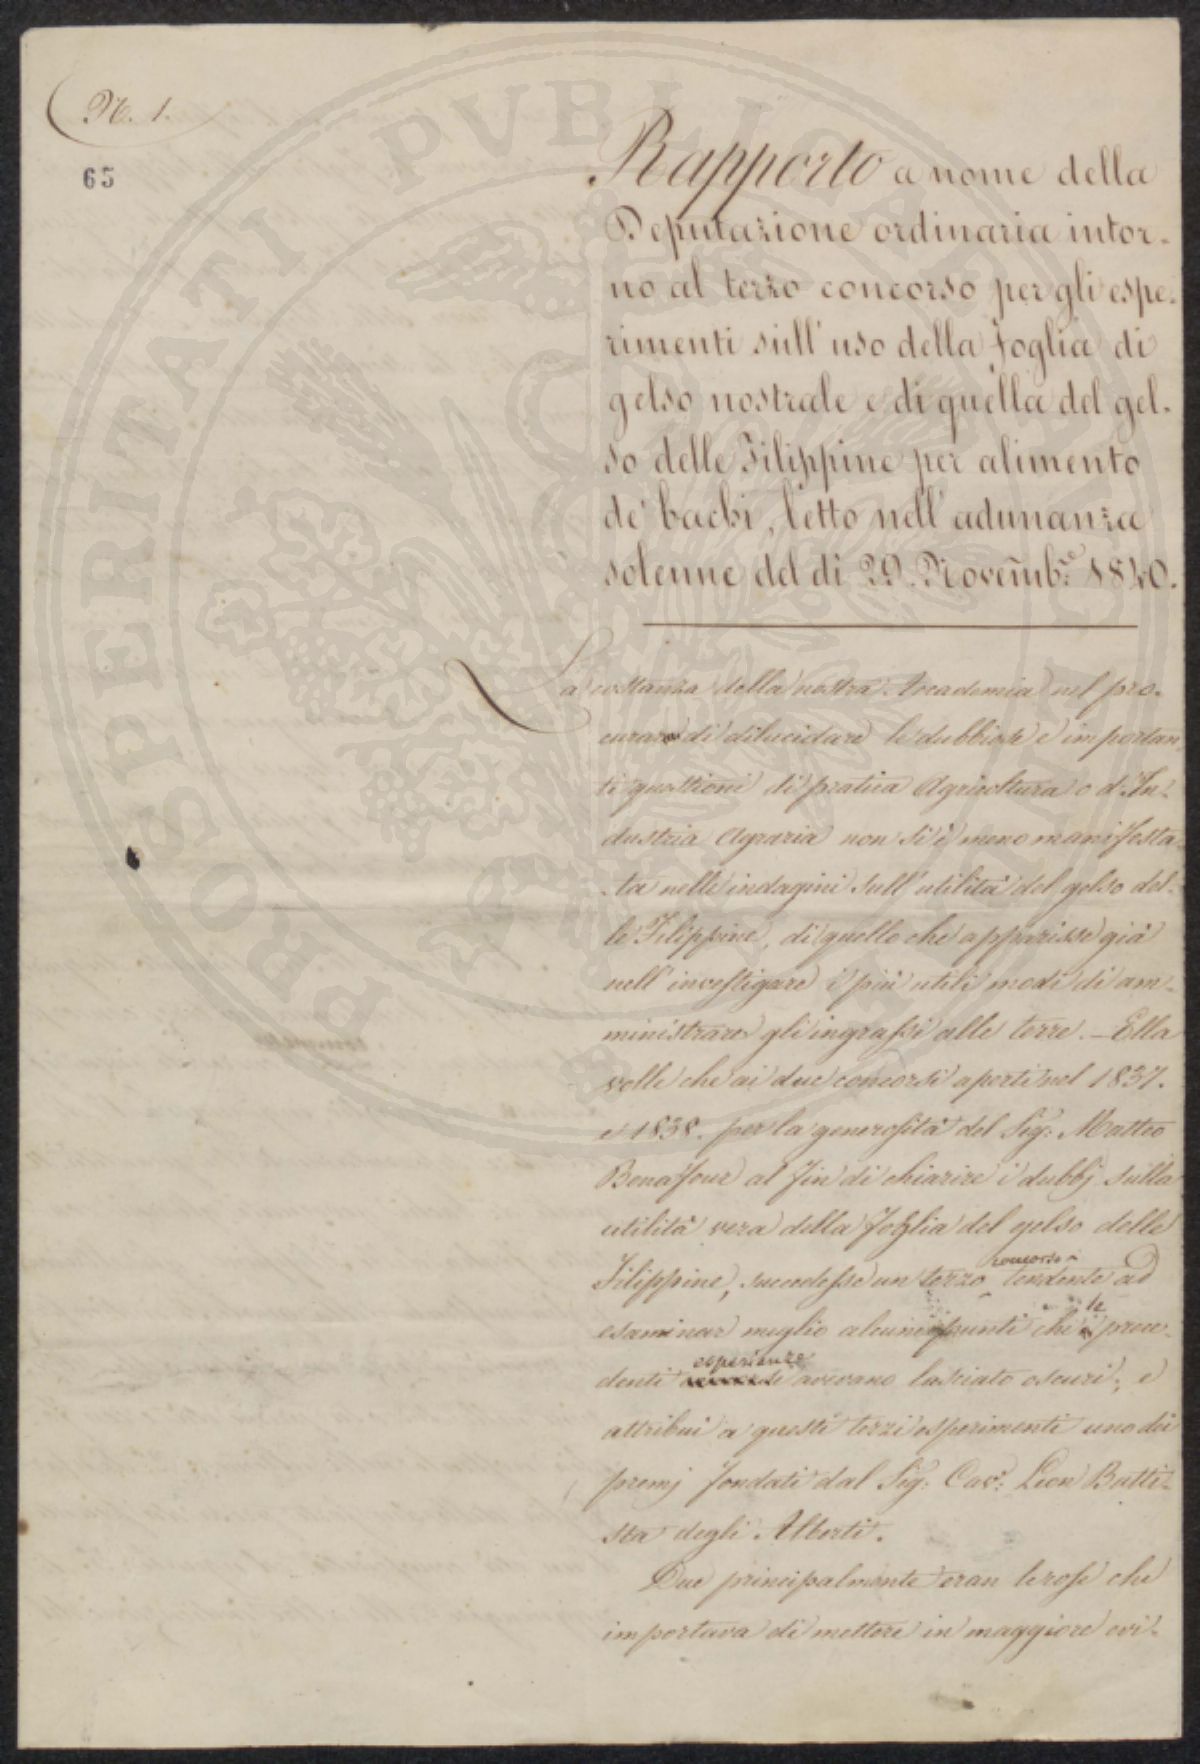 N. 1.
65
Rapporto a nome della
Deputazione ordinaria intor-
no al terzo concorso per gli espe-
rimenti sull'uso della foglia di
gelso nostrale e di quella del gel-
so delle Filippine per alimento
de' bachi, letto nell'adunanza
solenne del dì 29. Novemb.e 1840.
La costanza della nostra Accademia nel pro-
curare di dilucidare le dubbiose e importan
ti questioni di pratica Agricoltura o d'In-
dustria Agraria non si è meno manifesta-
ta nelle indagini sull'utilità del gelso del-
le Filippine, di quello che apparisse già
nell'investigare i più utili modi di am-
ministrare gli ingrassi alle terre. – Ella
volle che ai due concorsi aperti nel 1837.
e 1838. per la generosità del Sig: Matteo
Bonafour al fin di chiarire i dubbj sulla
utilità vera della foglia del gelso delle
Filippine, succedesse un terzo concorso tendente ad
esaminar meglio alcuni punti che le prece-
denti esperienze avevano lasciato oscuri; e
attribuì a questi terzi esperimenti uno dei
premj fondati dal Sig: Cav: Leon Batti-
sta degli Alberti.
Due principalmente eran le cose che
importava di mettere in maggiore evi-
PROSPERITATI PVBLICAE AVGENDAE